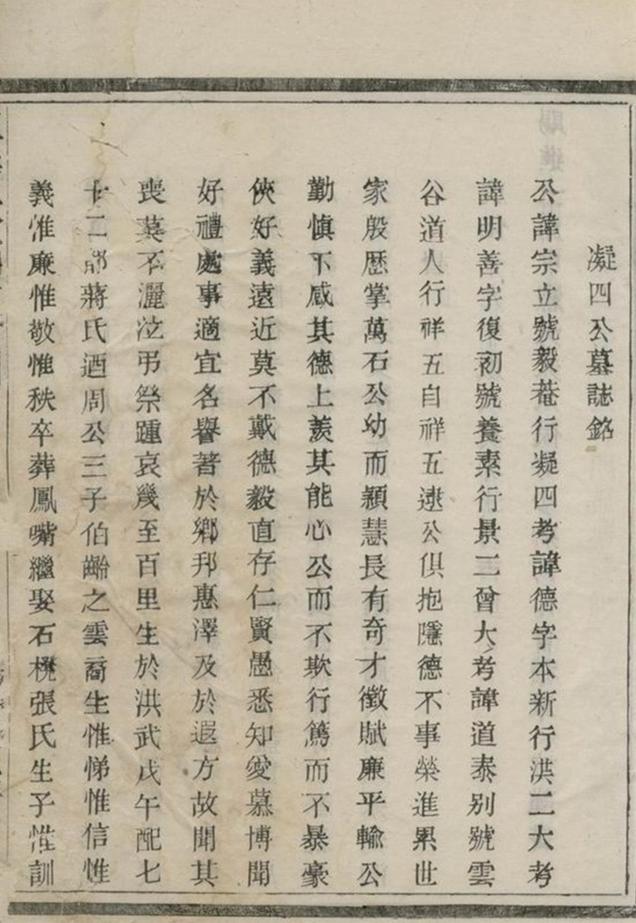 凝四公墓誌銘
公諱宗立號毅菴行凝四考諱德字本新行洪二大考
諱明善字復初號養素行景二曾大考諱道泰别號雲
谷道人行祥五自祥五逮公俱抱隱德不事榮進累世
家殷歴掌萬石公幼而穎慧長有奇才徵賦廉平輸公
勤慎下感其德上羨其能心公而不欺行篤而不暴豪
俠好義遠近莫不戴德毅直存仁賢愚悉知愛慕博聞
好禮處事適宜名譽著於鄉邦惠澤及於遐方故聞其
喪莫不灑泣弔祭踵哀幾至百里生於洪武戊午配七
十二都蔣氏迺周公三子伯齡之雲裔生惟悌惟信惟
義惟廉惟敬惟秩卒葬鳳嘴繼娶石櫈張氏生子惟訓